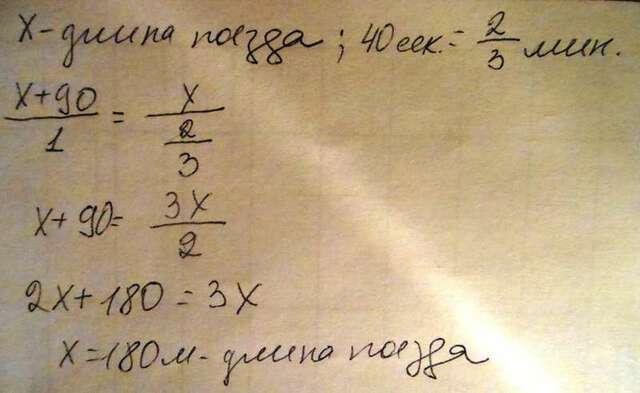 x - длина поезда ; 40 сек. = 2/3 мин.
(x+90)/1 = x/(2/3)
x + 90 = 3x/2
2x + 180 = 3x
x = 180 м - длина поезда